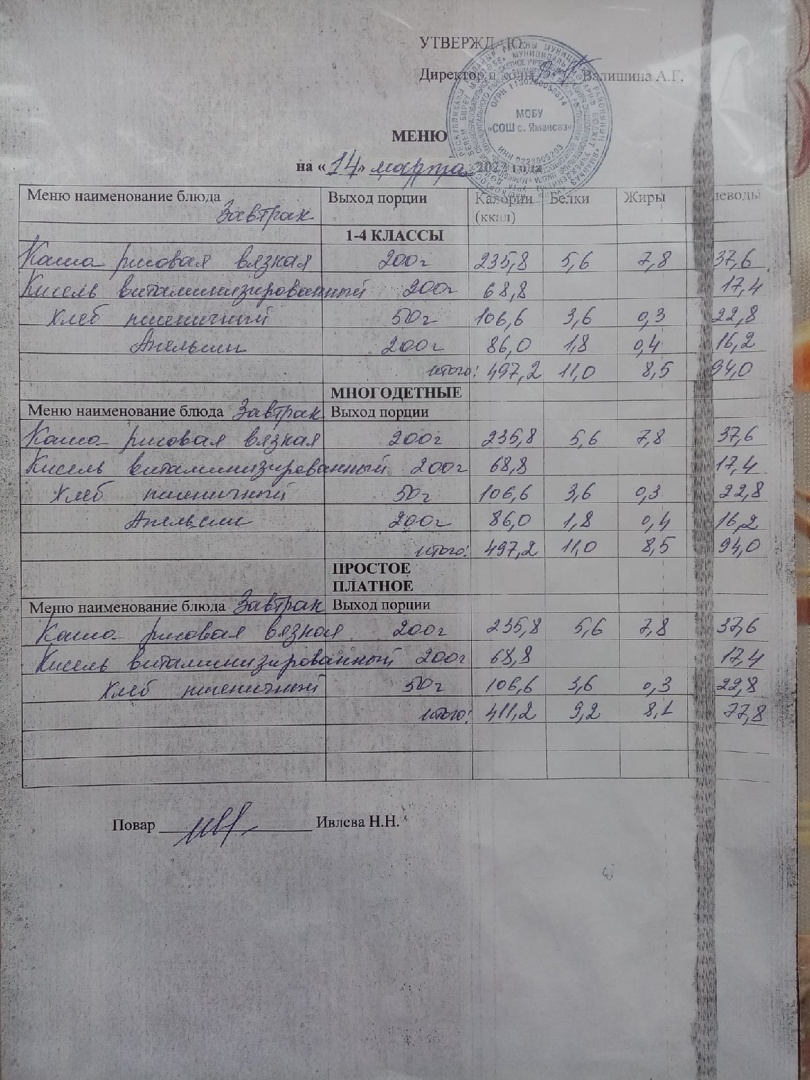 УТВЕРЖДАЮ
Директор школы Валишина А.Г.
МОБУ
«СОШ с. Ямансаз»
МЕНЮ
на «14» марта 2022 года
Меню наименование блюда Завтрак Выход порции Калории (ккал) Белки Жиры Углеводы
1-4 КЛАССЫ
Каша рисовая вязкая 200г 235,8 5,6 7,8 37,6
Кисель витаминизированный 200г 68,8 17,4
Хлеб пшеничный 50г 106,6 3,6 0,3 22,8
Апельсин 200г 86,0 1,8 0,4 16,2
итого: 497,2 11,0 8,5 94,0
МНОГОДЕТНЫЕ
Меню наименование блюда Завтрак Выход порции
Каша рисовая вязкая 200г 235,8 5,6 7,8 37,6
Кисель витаминизированный 200г 68,8 17,4
Хлеб пшеничный 50г 106,6 3,6 0,3 22,8
Апельсин 200г 86,0 1,8 0,4 16,2
итого: 497,2 11,0 8,5 94,0
ПРОСТОЕ
ПЛАТНОЕ
Меню наименование блюда Завтрак Выход порции
Каша рисовая вязкая 200г 235,8 5,6 7,8 37,6
Кисель витаминизированный 200г 68,8 17,4
Хлеб пшеничный 50г 106,6 3,6 0,3 22,8
итого: 411,2 9,2 8,1 77,8
Повар Ивлева Н.Н.